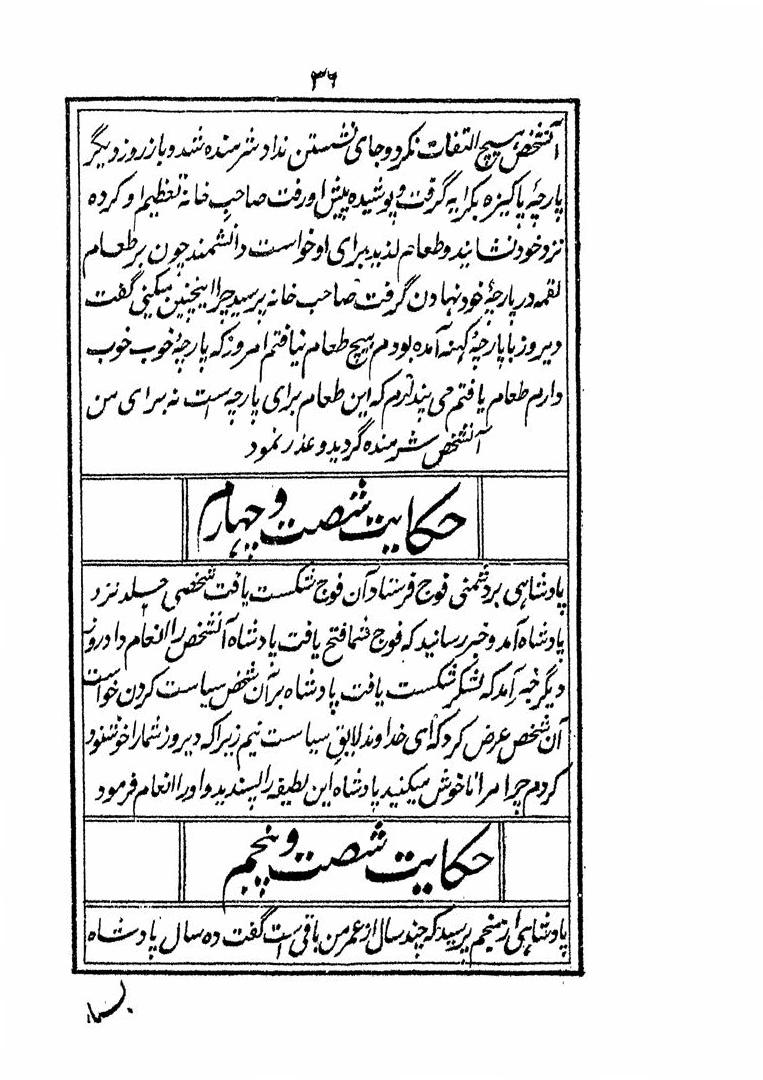 ۳۶
آنشخص هیچ التفات نکرد و جای نشستن نداد شرمنده شد و باز روز دیگر
پارچهٔ پاکیزه بکرایه گرفت و پوشیده پیش او رفت صاحب خانه تعظیم او کرده
نزد خود نشانید و طعام لذید برای او خواست دانشمند چون بر طعام
لقمه در پارچهٔ خود نهادن گرفت صاحب خانه پرسید چرا اینچنین میکنی گفت
دیروز با پارچهٔ کهنه آمده بودم هیچ طعام نیافتم امروز که پارچهٔ خوب خوب
دارم طعام یافتم می پندارم که این طعام برای پارچه است نه برای من
آنشخص شرمنده گردید و عذر نمود
حکایت شصت و چهارم
پادشاهی بر دشمنی فوج فرستاد آن فوج شکست یافت شخصی جلد نزد
پادشاه آمد و خبر رسانید که فوج شما فتح یافت پادشاه آنشخص را انعام داد روز
دیگر خبر آمد که لشکر شکست یافت پادشاه بر آن شخص سیاست کردن خواست
آن شخص عرض کرد که ای خداوند لایق سیاست نیم زیرا که دیروز شما را خوشنود
کردم چرا مرا ناخوش میکنید پادشاه این لطیفه را پسندید و او را انعام فرمود
حکایت شصت و پنجم
پادشاهی از منجم پرسید که چند سال از عمر من باقی است گفت ده سال پادشاه
بسیار